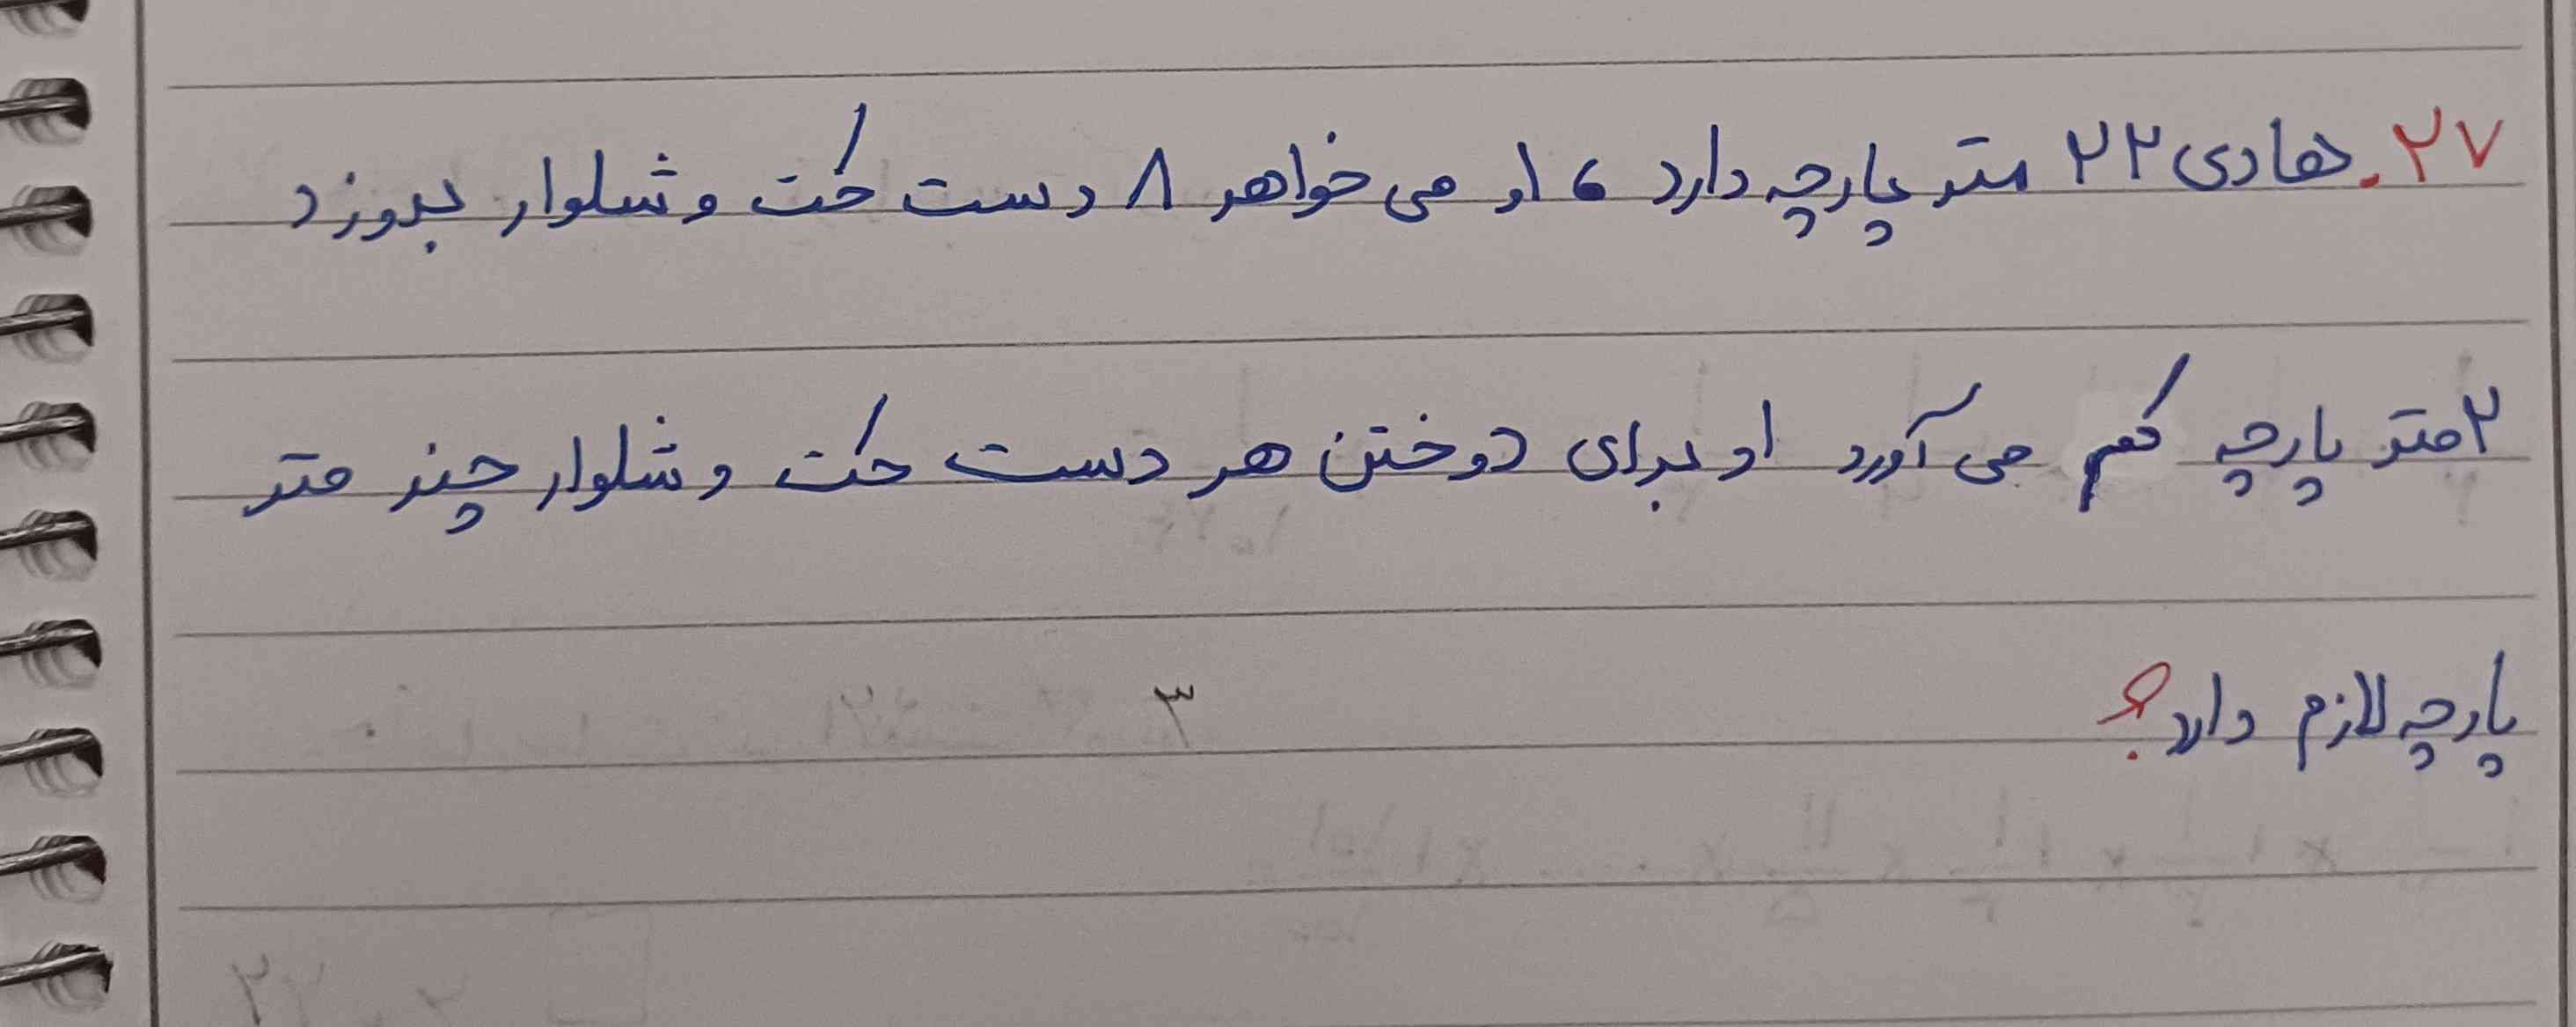 ۲۷. هادی ۲۲ متر پارچه دارد ، او می خواهد ۸ دست کت و شلوار بدوزد
۲ متر پارچه کم می آورد او برای دوختن هر دست کت و شلوار چند متر
پارچه لازم دارد؟ ۳